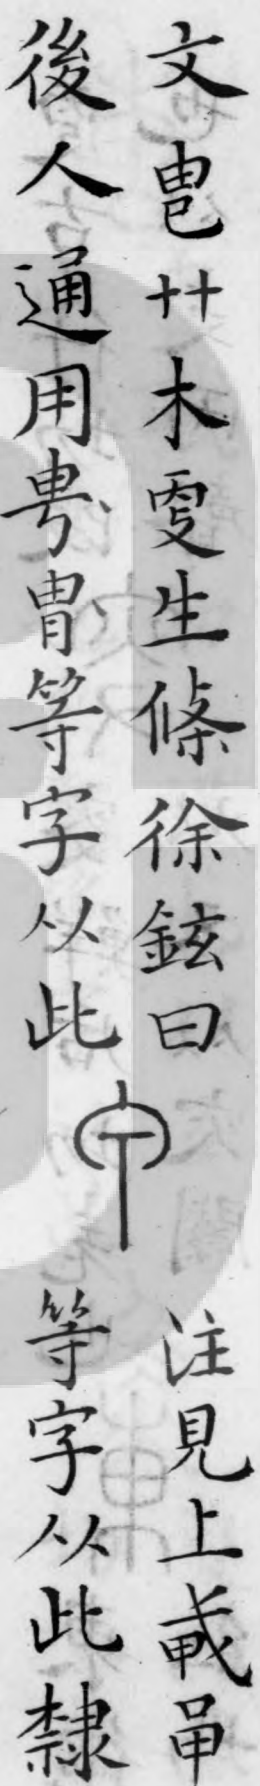 文㽕艹木生條徐鉉曰
後人通用甹胄等字从此
注見上
等字从此隸